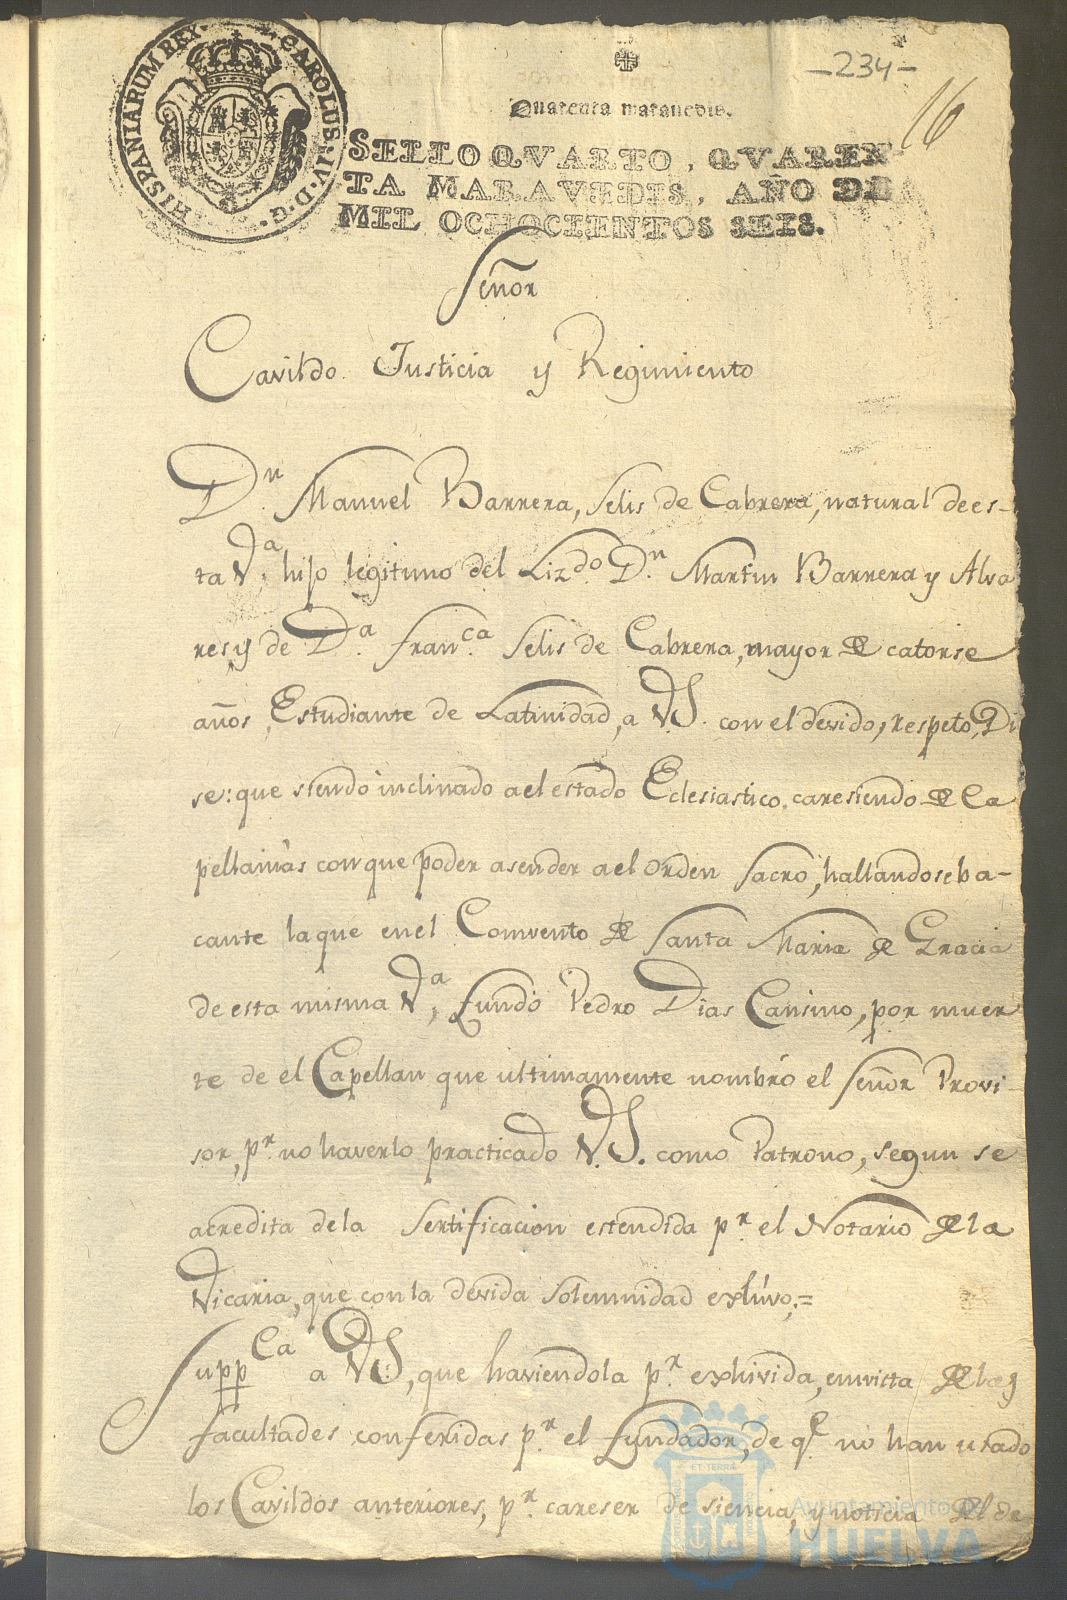 -234-
16
HISPANIARUM REX · CAROLUS · IV · D · G ·
Quarenta maravedis.
SELLO QVARTO, QVAREN-
TA MARAVEDIS, AÑO DE
MIL OCHOCIENTOS SEIS.
Señor
Cavildo Justicia y Regimiento
Dn. Manuel Barrera, Selis de Cabrera, natural de es-
ta Va. hijo legitimo del Lizdo. Dn. Martin Barrera y Alva
res, y de Da. Franca. Selis de Cabrera, mayor de catorse
años, Estudiante de Latinidad, a VS. con el devido, respeto, Di
se: que siendo inclinado a el estado Eclesiastico, caresiendo de Ca
pellanias con que poder asender a el orden sacro, hallandose ba-
cante la que en el Comvento de Santa Maria de Gracia
de esta misma Va, fundó Pedro Dias Cansino, por muer
te de el Capellan que ultimamente nombró el Señor Provi-
sor, pr. no haverlo practicado V.S. como Patrono, segun se
acredita de la Sertificacion estendida pr. el Notario de la
Vicaria, que con la devida solemnidad exhivo,=
SuppCa a VS, que haviendola pr. exhivida, en vista de las
facultades conferidas pr. el fundador, de qe. no han usado
los Cavildos anteriores, pr. careser de siencia, y noticia del de
ET TERRÆ
Ayuntamiento de
HUELVA